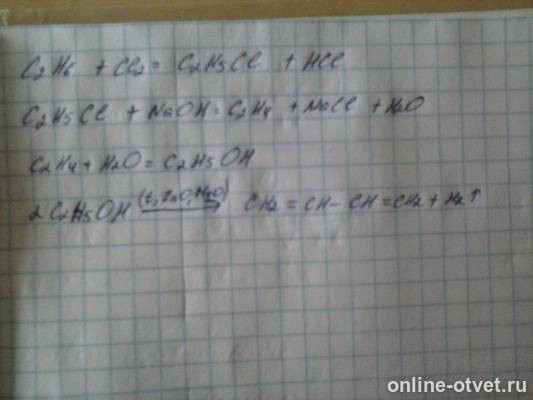 C2H6 + Cl2 = C2H5Cl + HCl
C2H5Cl + NaOH = C2H4 + NaCl + H2O
C2H4 + H2O = C2H5OH
2C2H5OH (t, ZnO, Al2O3) → CH2 = CH - CH = CH2 + H2↑
online-otvet.ru